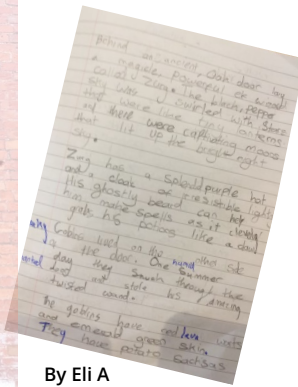 Behind an ancient, Oak door lay
a magical, powerful
called Zing. The black, pepper
sky was covered with stars
they were like tiny lanterns
and there were captivating moons
that lit up the bright night
sky.
Zing has a splendid purple hat
and a cloak of irresistible lights
His ghostly beard can help
him make spells as it cleverly
grabs his potions like a claw
Goblins lived on the other side
of the door. One humid summer
day they through the
and stole his dancing
twisted wand.
The goblins have red lava
and emerald green skin.
They have potato
By Eli A